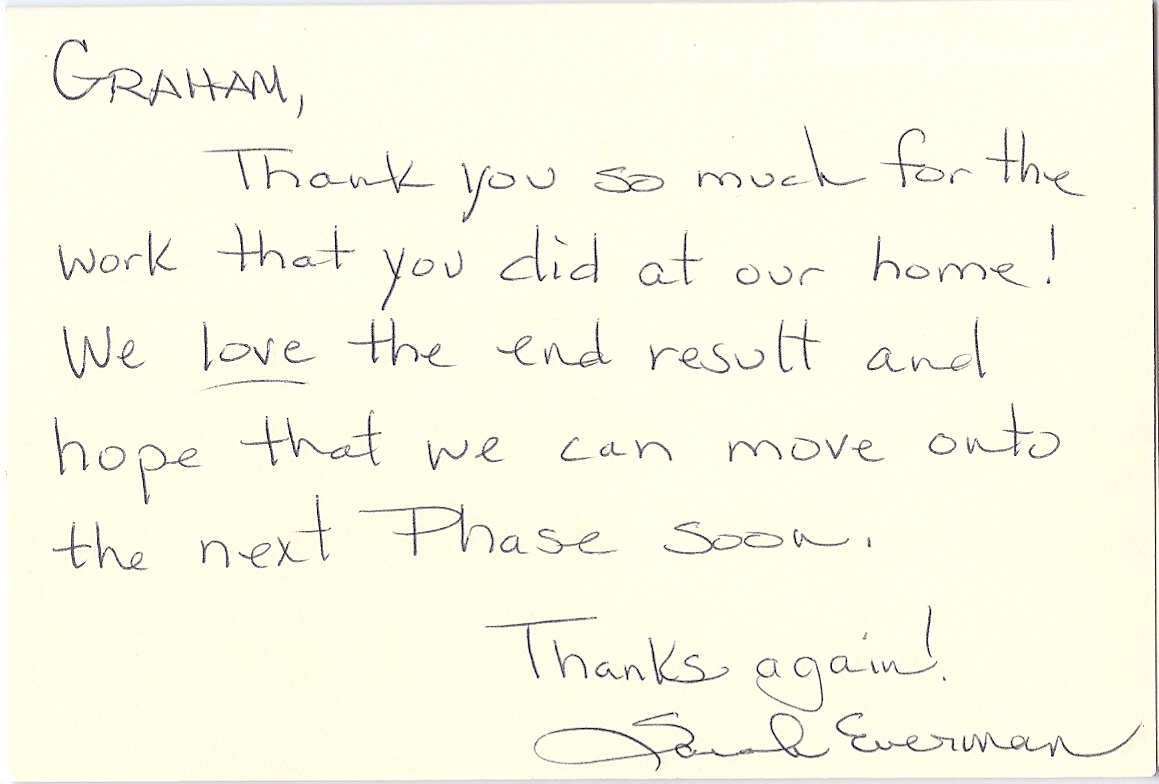 GRAHAM,
Thank you so much for the
work that you did at our home!
We love the end result and
hope that we can move onto
the next Phase soon.
Thanks again!
Sarah Everman